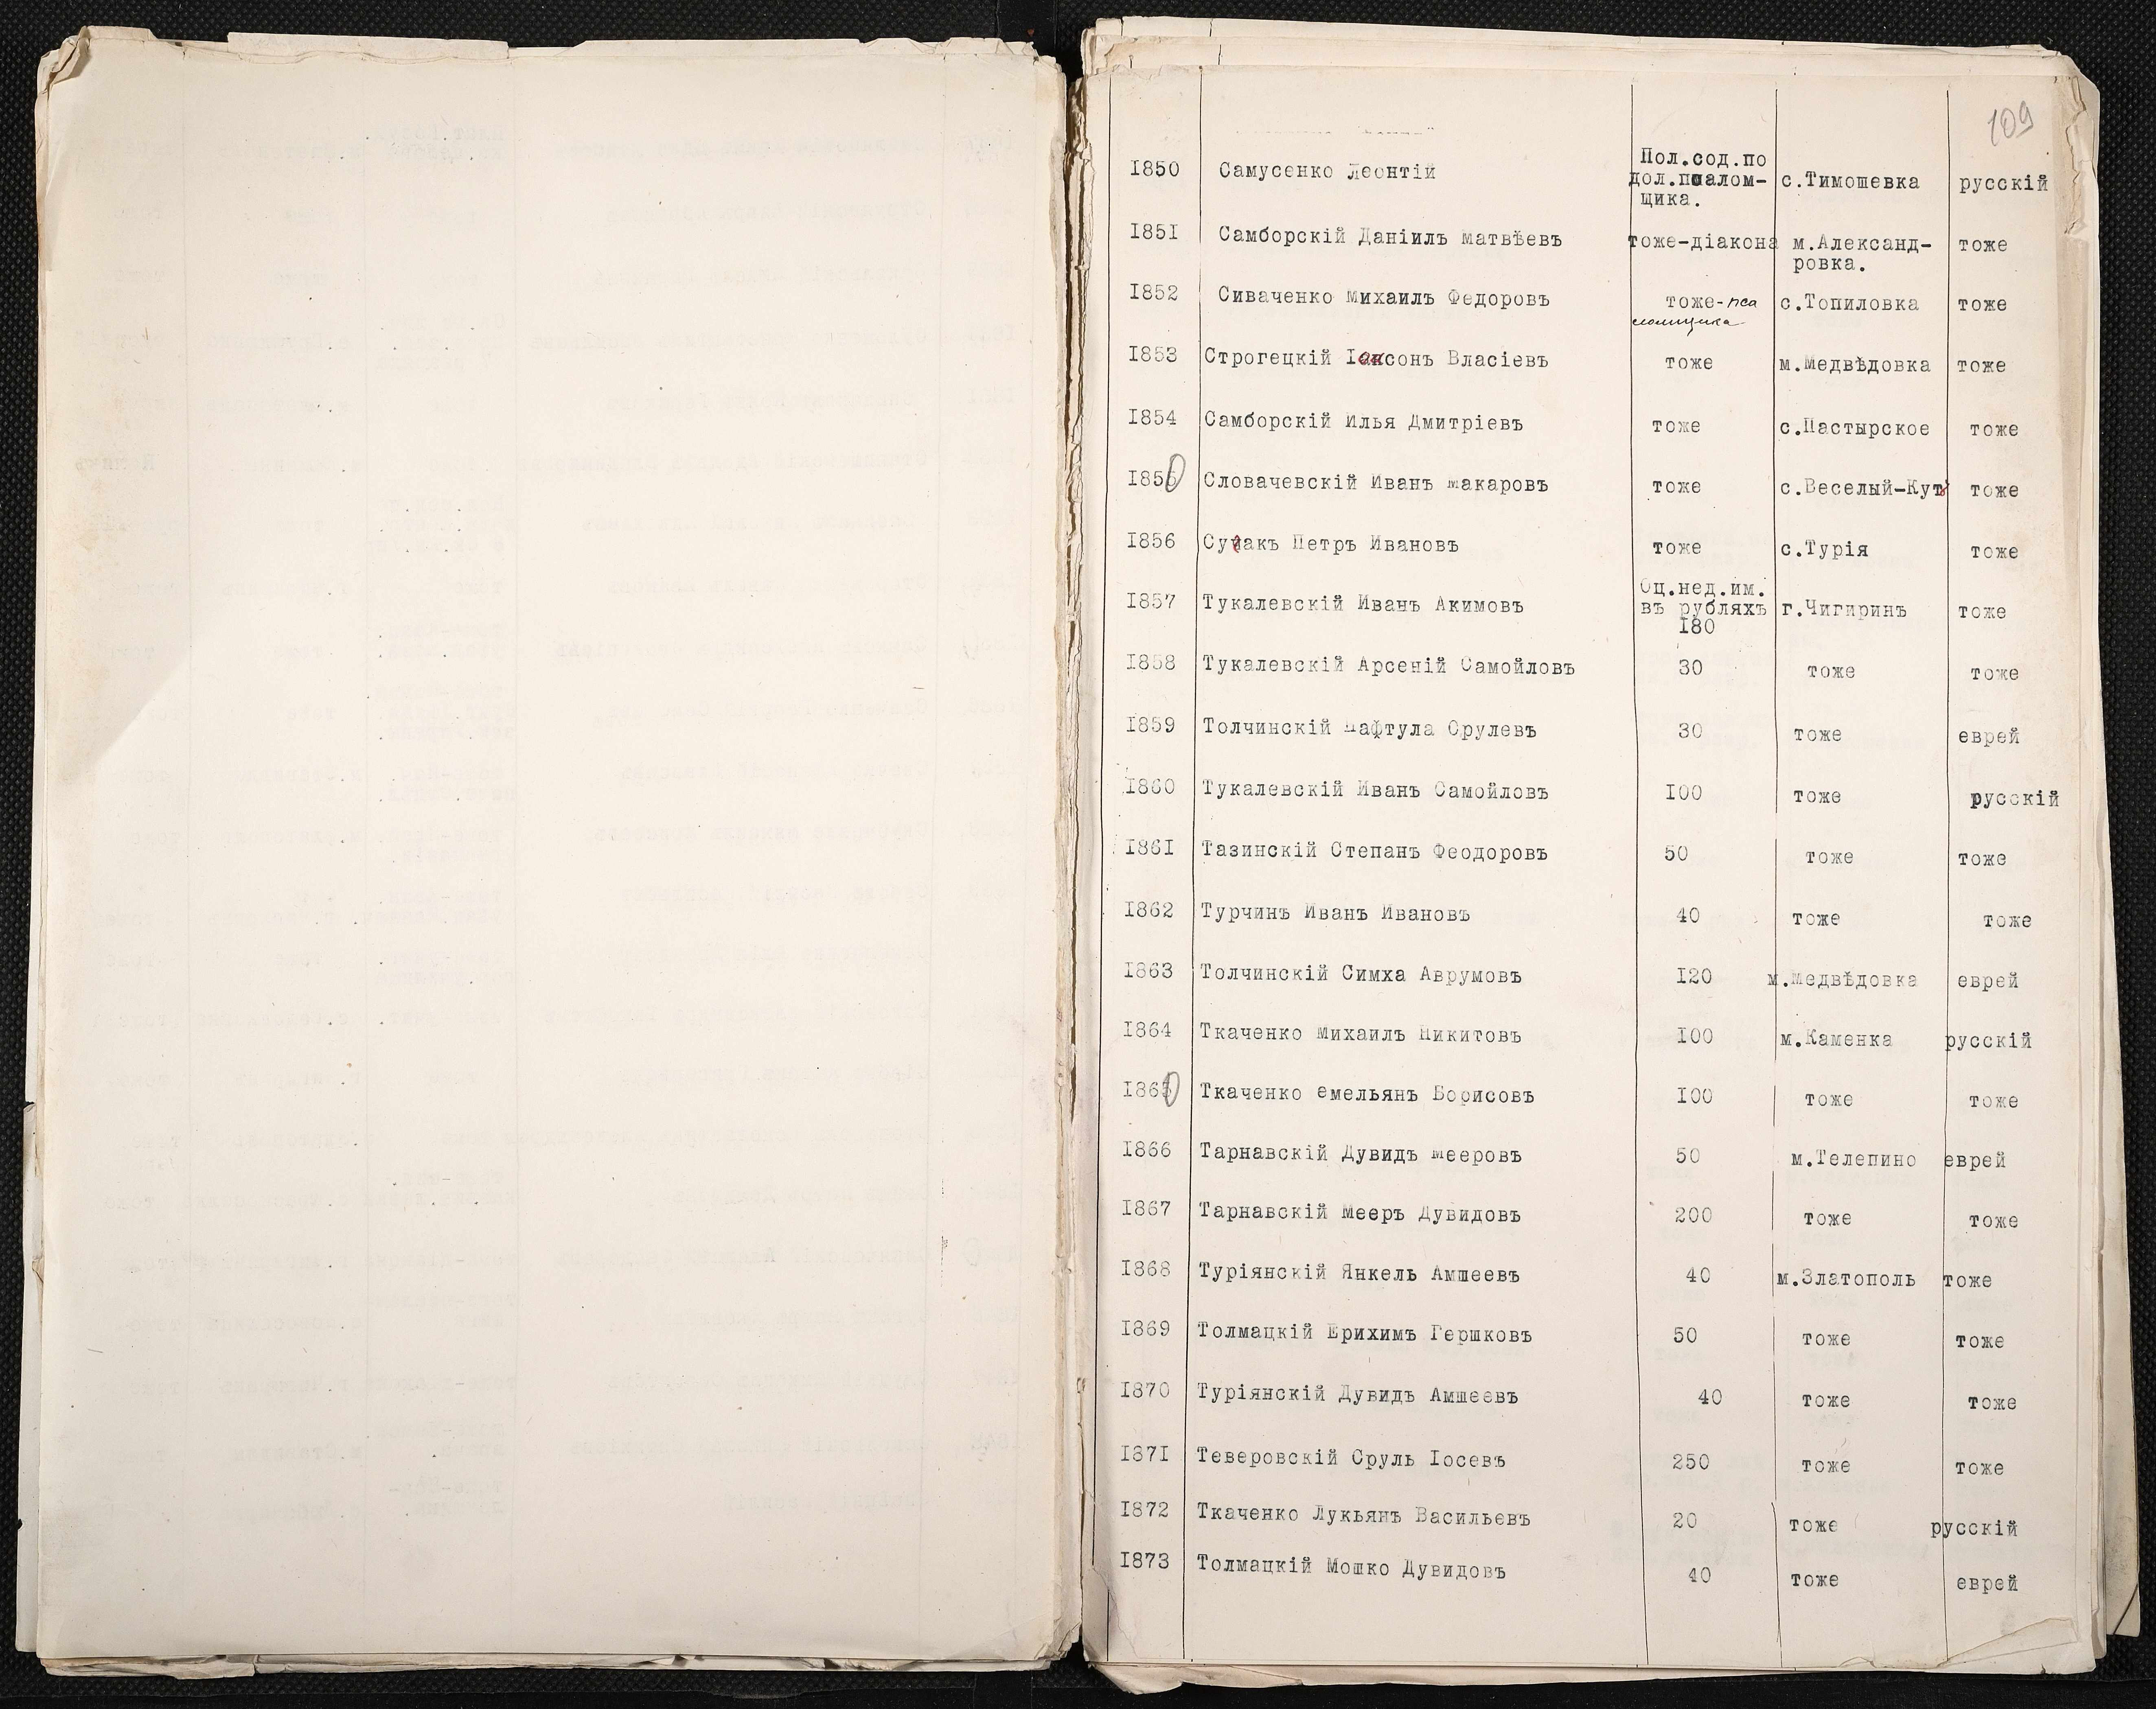 109
1850 Самусенко Леонтій Пол.сод.по дол.псалом-щика. с.Тимошевка русскій
1851 Самборскій Даніилъ Матвѣевъ тоже-діакона м.Александ-ровка. тоже
1852 Сиваченко Михаилъ Федоровъ тоже-псаломщика с.Топиловка тоже
1853 Строгецкій Іассонъ Власіевъ тоже м.Медвѣдовка тоже
1854 Самборскій Илья Дмитріевъ тоже с.Пастырское тоже
1855 Словачевскій Иванъ Макаровъ тоже с.Веселый-Кутъ тоже
1856 Петръ Ивановъ тоже с.Турія тоже
1857 Тукалевскій Иванъ Акимовъ Оц.нед.им. въ рубляхъ 180 г.Чигиринъ тоже
1858 Тукалевскій Арсеній Самойловъ 30 тоже тоже
1859 Толчинскій Нафтула Срулевъ 30 тоже еврей
1860 Тукалевскій Иванъ Самойловъ 100 тоже русскій
1861 Тазинскій Степанъ Феодоровъ 50 тоже тоже
1862 Турчинъ Иванъ Ивановъ 40 тоже тоже
1863 Толчинскій Симха Аврумовъ 120 м.Медвѣдовка еврей
1864 Ткаченко Михаилъ Никитовъ 100 м.Каменка русскій
1865 Ткаченко Емельянъ Борисовъ 100 тоже тоже
1866 Тарнавскій Дувидъ Мееровъ 50 м.Телепино еврей
1867 Тарнавскій Мееръ Дувидовъ 200 тоже тоже
1868 Туріянскій Янкель Амшеевъ 40 м.Златополь тоже
1869 Толмацкій Ерихимъ Гершковъ 50 тоже тоже
1870 Туріянскій Дувидъ Амшеевъ 40 тоже тоже
1871 Теверовскій Сруль Іосевъ 250 тоже тоже
1872 Ткаченко Лукьянъ Васильевъ 20 тоже русскій
1873 Толмацкій Мошко Дувидовъ 40 тоже еврей